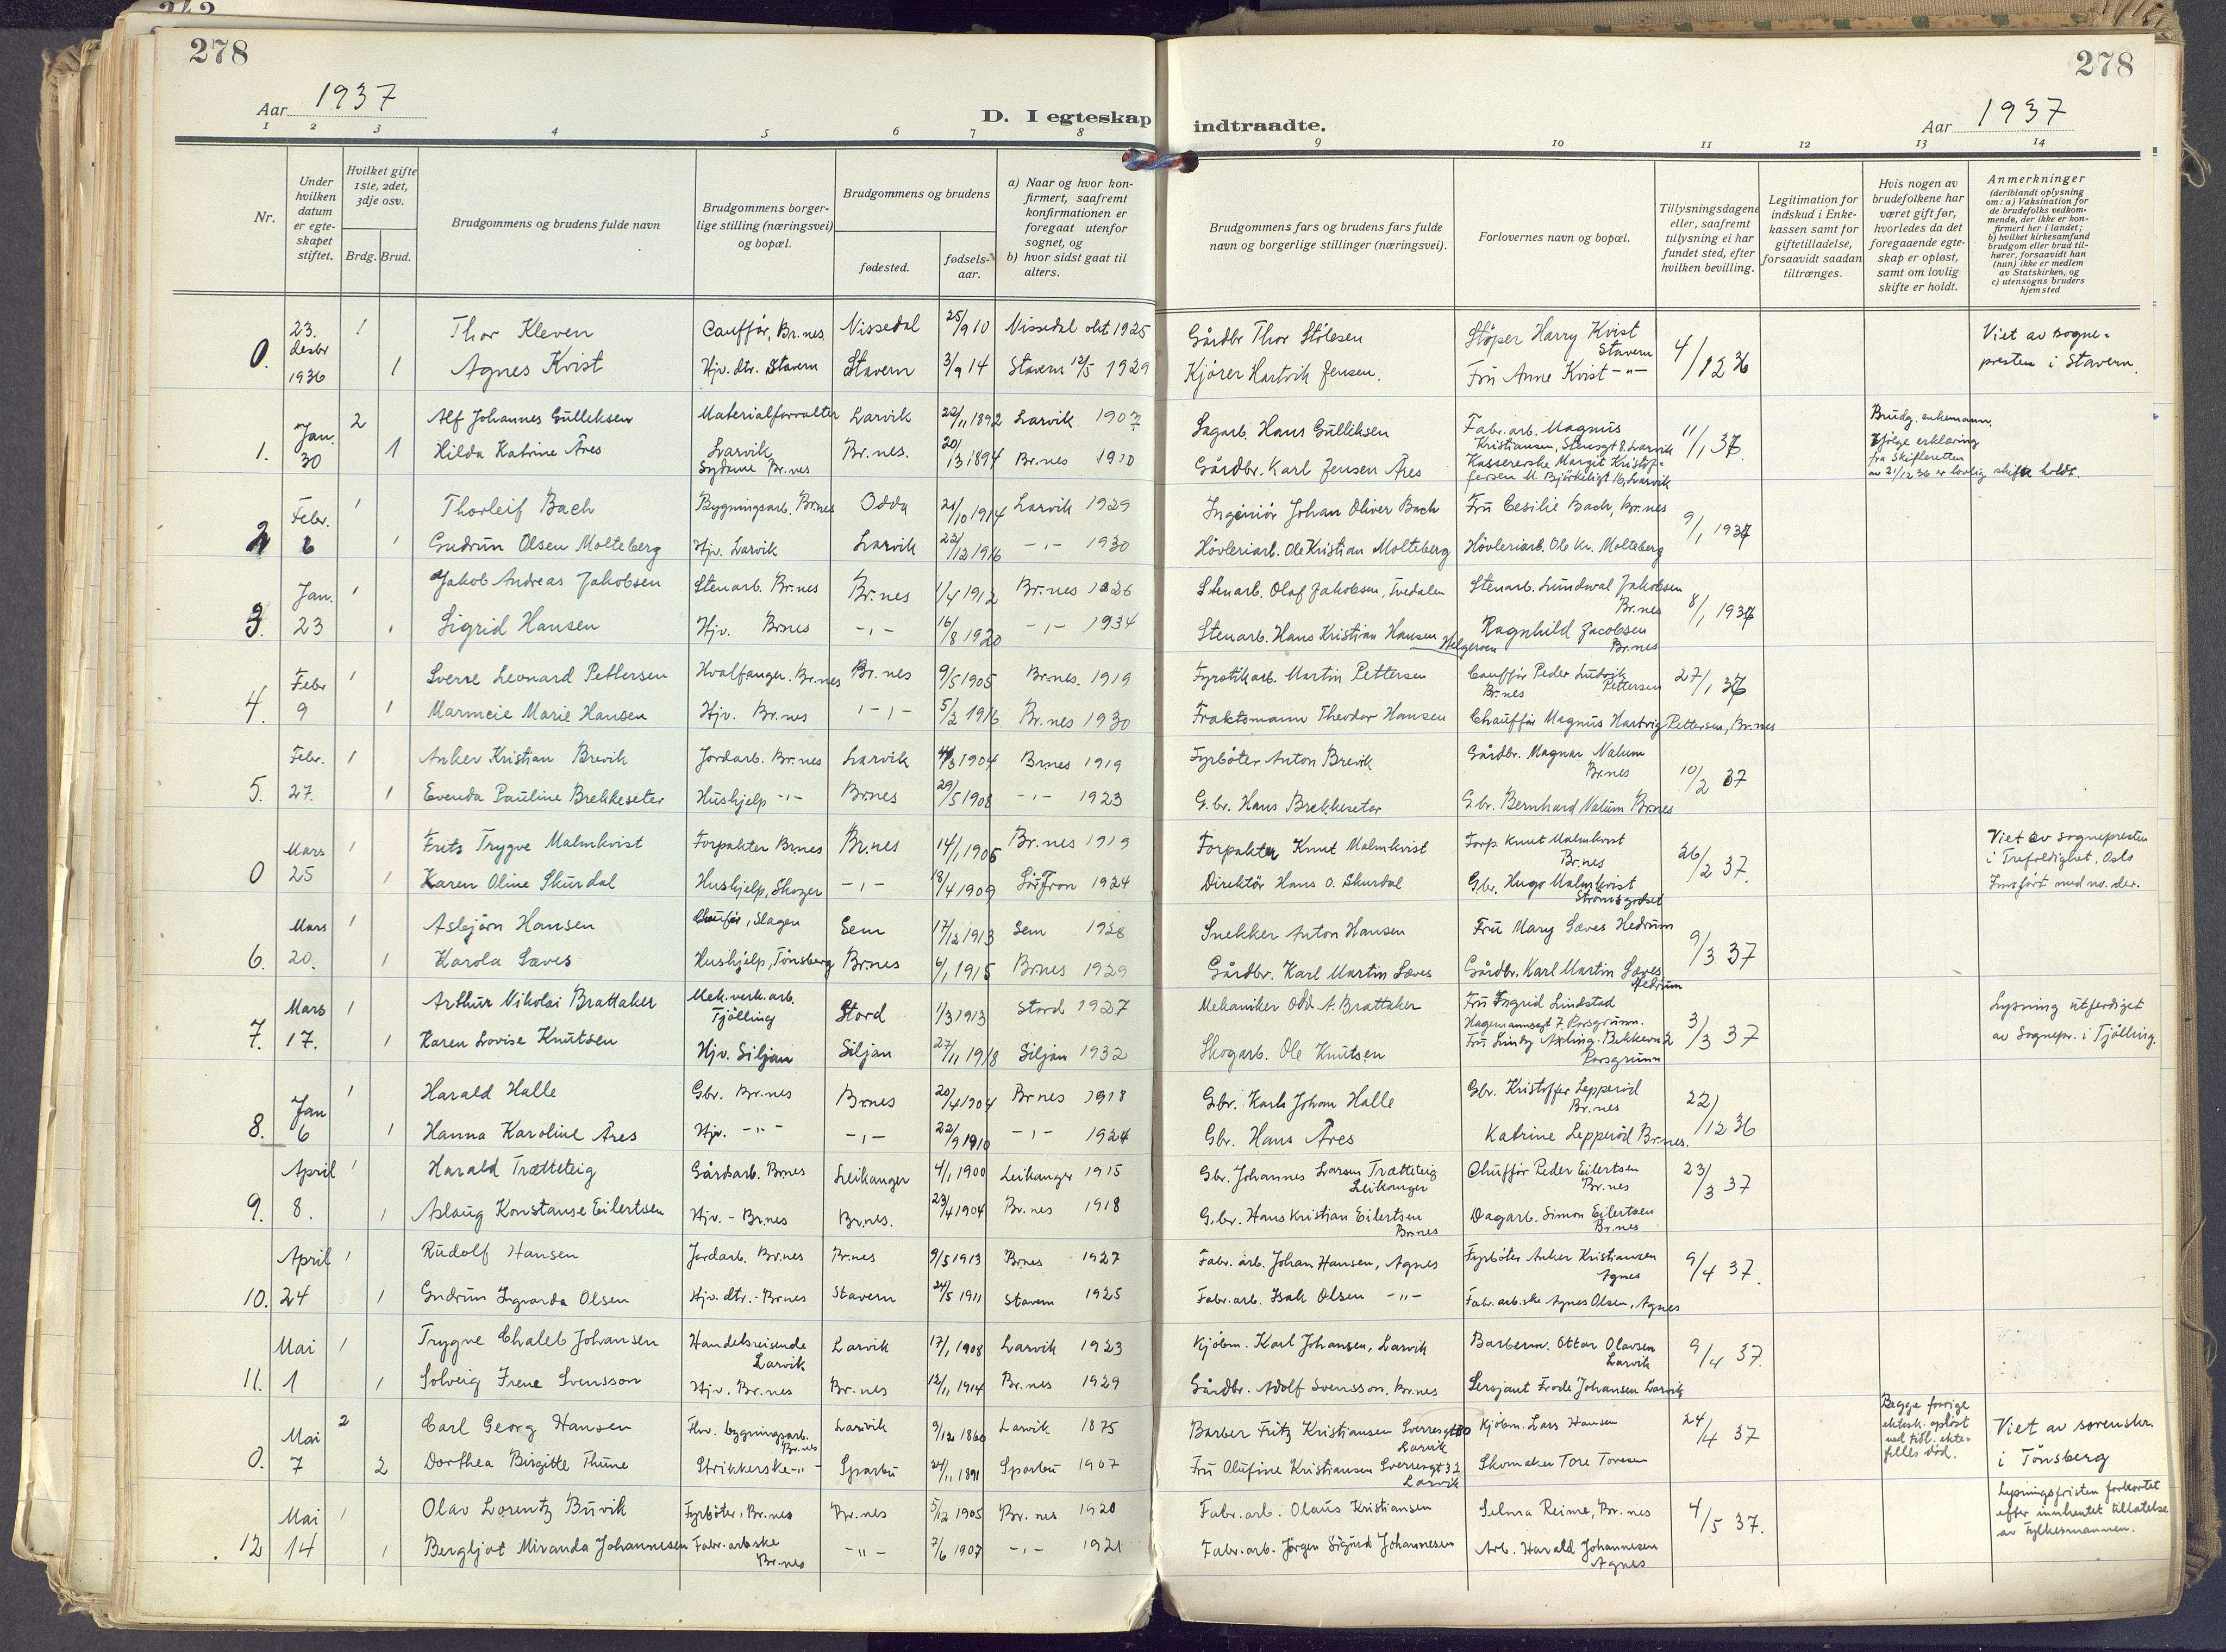 278
278
Aar 1937
D. I egteskap indtraadte.
Aar 1937
1 2 3 4 5 6 7 8 9 10 11 12 13 14
Nr.
Under hvilken datum er egteskapet stiftet.
Hvilket gifte 1ste, 2det, 3dje osv.
Brdg. Brud.
Brudgommens og brudens fulde navn
Brudgommens borgerlige stilling (næringsvei) og bopæl.
Brudgommens og brudens
fødested.
fødselsaar.
a) Naar og hvor konfirmert, saafremt konfirmationen er foregaat utenfor sognet, og
b) hvor sidst gaat til alters.
Brudgommens fars og brudens fars fulde navn og borgerlige stillinger (næringsvei).
Forlovernes navn og bopæl.
Tillysningsdagene eller, saafremt tillysning ei har fundet sted, efter hvilken bevilling.
Legitimation for indskud i Enkekassen samt for giftetilladelse, forsaavidt saadan tiltrænges.
Hvis nogen av brudefolkene har været gift før, hvorledes da det foregaaende egteskap er opløst, samt om lovlig skifte er holdt.
Anmerkninger
(deriblandt oplysning om: a) Vaksination for de brudefolks vedkommende, der ikke er konfirmert her i landet;
b) hvilket kirkesamfund brudgom eller brud tilhører, forsaavidt han (hun) ikke er medlem av Statskirken, og
c) utensogns bruders hjemsted
0. 23. desbr 1936 1 Thor Kleven Cauffør, Br.nes Nissedal 25/9 10 Nissedal okt 1925 Gårdbr Thor Stölesen Støper Harry Kvist Stavern 4/12 36 Viet av sogne-
presten i Stavern.
1 Agnes Kvist Hjv. dtr. Stavern Stavern 3/9 14 Stavern 12/5 1929 Kjører Hartvik Jensen. Fru Anne Kvist -"-
1. Jan. 30 2 Alf Johannes Gulleksen Materialforvalter Larvik Larvik 22/11 1892 Larvik 1907 Sagarb. Hans Gulliksen Fabr. arb. Magnus Kristiansen, Stensgt 8. Larvik 11/1 37 Brudg. enkemann.
Ifølge erklæring
fra Skifteretten
av 21/12 36 er lovlig skifte holdt.
1 Hilda Katrine Åres Sydame Br.nes Br.nes. 20/3 1894 Br.nes 1910 Gårdbr. Karl Jensen Åres Kassererske Margit Kristoffersen
2 Febr. 6 1 Thorleif Bach Bygningsarb. Br.nes Odda 21/10 1914 Larvik 1929 Ingeniør Johan Oliver Bach Fru Cesilie Bach, Br.nes 9/1 1937
1 Gudrun Olsen Molteberg Hjv. Larvik Larvik 22/12 1916 -"- 1930 Høvleriarb. Ole Kristian Molteberg Høvleriarb. Ole Kr. Molteberg
3. Jan. 23 1 Jakob Andreas Jakobsen Stenarb. Br.nes Br.nes 1/4 1912 Br.nes 1926 Stenarb. Olaf Jakobsen, Tvedalen Stenarb. Lundwal Jakobsen Br.nes 8/1 1937
1 Sigrid Hansen Hjv. Br.nes -"- 16/8 1920 -"- 1934 Stenarb. Hans Kristian Hansen Helgeroen Ragnhild Jacobsen Br.nes
4. Febr 9 1 Sverre Leonard Pettersen Hvalfanger. Br.nes Br.nes 9/5 1905 Br.nes. 1919 Fyrstikarb. Martin Pettersen Cauffør Peder Ludvik Pettersen Br.nes 27/1 37
1 Marmeie Marie Hansen Hjv. Br.nes -"- 5/2 1916 Br.nes 1930 Fraktsmann Theodor Hansen Chauffør Magnus Hartvig Pettersen, Br.nes
5. Febr. 27. 1 Anker Kristian Brevik Jordarb. Br.nes Larvik 1904 Br.nes 1919 Fyrbøter Anton Brevik Gårdbr. Magnar Nalum Br.nes 10/2 37
1 Evenda Pauline Brekkeseter Hushjelp -"- Br.nes 29/5 1908 -"- 1923 G.br. Hans Brekkeseter G.br. Bernhard Nalum Br.nes
0 Mars 25 1 Frits Trygve Malmkvist Forpakter Br.nes Br.nes 14/1 1905 Br.nes 1919 Forpakter Knut Malmkvist Forp. Knut Malmkvist Br.nes 26/2 37. Viet av sognepresten
i Trefoldighet, Oslo
Innført med no. der.
1 Karen Oline Skurdal Hushjelp, Skoger -"- 18/4 1909 Sör Fron 1924 Direktör Hans O. Skurdal G.br. Hugo Malmkvist Strømsgodset
6. Mars 20. 1 Asbjörn Hansen Chauffør, Slagen Sem 17/12 1913 Sem 1928 Snekker Anton Hansen Fru Mary Sæves Hedrum 9/3 37
1 Karola Sæves Hushjelp, Tönsberg Br.nes 6/1 1915 Br.nes 1929 Gårdbr. Karl Martin Sæves Gårdbr. Karl Martin Sæves Hedrum
7. Mars 17. 1 Arthur Nikolai Brattaker Mek. verk. arb. Tjölling Stord 1/3 1913 Stord 1927 Mekaniker Odd A. Brattaker Fru Ingrid Lindstad Hagemannsgt 7. Porsgrunn. 3/3 37 Lysning utferdiget
av Sognepr. i Tjölling.
1 Karen Lovise Knutsen Hjv. Siljan Siljan 27/11 1918 Siljan 1932 Skogarb. Ole Knutsen Porsgrunn
8. Jan 6 1 Harald Halle Gbr. Br.nes Br.nes 20/4 1904 Br.nes 1918 Gbr. Karl Johan Halle Gbr. Kristoffer Lepperöd Br.nes 22/12 36
1 Hanna Karoline Åres Hjv. -"- -"- 22/9 1910 -"- 1924 Gbr. Hans Åres Katrine Lepperöd Br.nes.
9. April 8. 1 Harald Trætteteig Gårdsarb. Br.nes Leikanger 4/1 1900 Leikanger 1915 Gbr. Johannes Larsen Trætteteig Leikanger Chuffør Peder Eilertsen Br.nes 23/3 37
1 Aslaug Konstanse Eilertsen Hjv. - Br.nes Br.nes. 23/4 1904 Br.nes 1918 G.br. Hans Kristian Eilertsen Br.nes Dagarb. Simon Eilertsen Br.nes
10. April 24 1 Rudolf Hansen Jordarb. Br.nes Br.nes 9/5 1913 Br.nes 1927 Fabr. arb. Johan Hansen, Agnes Fyrbøter Anker Kristiansen Agnes 9/4 37.
1 Gudrun Ingvarda Olsen Hjv. dtr. - Br.nes Stavern 24/5 1911 Stavern 1925 Fabr. arb. Isak Olsen -"- Fabr. arb.ske Agnes Olsen, Agnes
11. Mai 1 1 Trygve Chaleb Johansen Handelsreisende Larvik Larvik 17/1 1908 Larvik 1923 Kjöbm. Karl Johansen, Larvik Barberm. Ottar Olavsen Larvik 9/4 37.
1 Solveig Irene Svensson Hjv. Br.nes Br.nes 12/11 1914 Br.nes 1929 Gårdbr. Adolf Svensson, Br.nes Sersjant Frode Johansen Larvik
0. Mai 7 2 Carl Georg Hansen Fhv. bygningsarb. Br.nes Larvik 9/12 1860 Larvik 1875 Barber Fritz Kristiansen Sverresgt Larvik Kjöbm. Lars Hansen 24/4 37 Begge forrige
ektesk. opløst
ved tidl. ekte-
felles död. Viet av sorenskr.
i Tönsberg
2 Dorthea Birgitte Thune Strikkerske -"- Sparbu 24/11 1891 Sparbu 1907 Fru Olufine Kristiansen Sverresgt 32 Larvik Skomaker Tore Toresen
12 Mai 14 1 Olav Lorentz Buvik Fyrbøter, Br.nes Br.nes 5/12 1905 Br.nes 1920 Fabr. arb. Olaus Kristiansen Selma Reime, Br.nes 4/5 37. Lysningsfristen forkortet
efter innhentet tillatelse
av Fylkesmannen.
1 Bergljot Miranda Johannesen Fabr. arbske Br.nes -"- 7/6 1907 -"- 1921 Fabr. arb. Jørgen Sigurd Johannesen Arb. Harald Johannesen Agnes